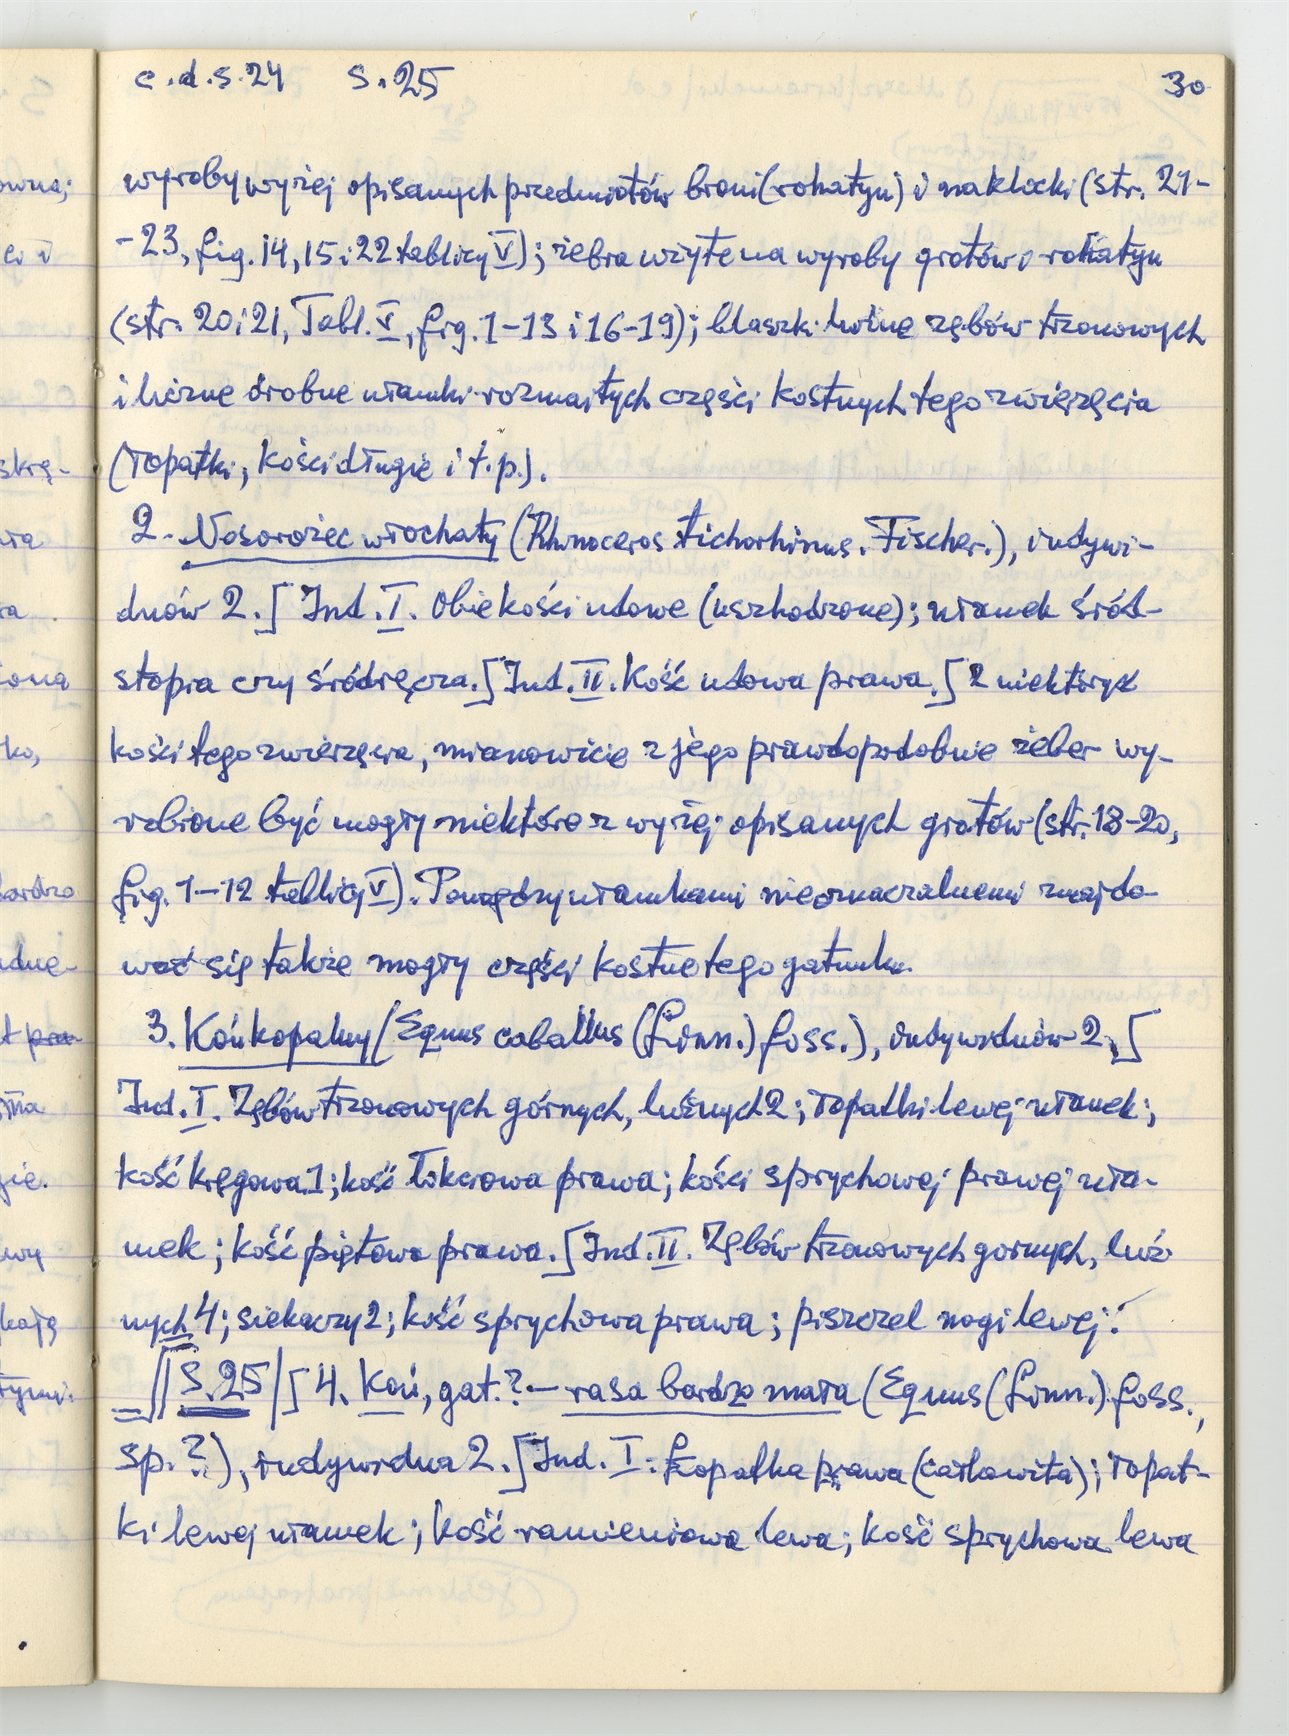 c.d.s.24 s.25 30
wyroby wyżej opisanych przedmiotów broni (rohatyn) i (str. 21-
-23, fig. 14, 15 i 22 tablicy V); żebra użyte na wyroby grotów i rohatyn
(str. 20 i 21, Tabl. V, fig. 1-13 i 16-19); blaszki luźne zębów trzonowych
i liczne drobne ułamki rozmaitych części kostnych tego zwierzęcia
(łopatki, kości długie i t.p.).
2. Nosorożec włochaty (Rhinoceros tichorhinus. Fischer.), indywi-
duów 2. [ Ind. I. Obie kości udowe (uszkodzone); ułamek śród-
stopia czy śródręcza. ] Ind. II. Kość udowa prawa. ] Z niektórych
kości tego zwierzęcia, mianowicie z jego prawdopodobnie żeber wy-
robione być mogły niektóre z wyżej opisanych grotów (str. 18-20,
fig. 1-12 tablicy V). Pomiędzy ułamkami nieoznaczalnemi znajdo-
wać się także mogły części kostne tego gatunku.
3. Koń kopalny (Equus caballus (Linn.) foss.), indywiduów 2. [
Ind. I. Zębów trzonowych górnych, luźnych 2; łopatki lewej ułamek;
kość kręgowa 1; kość łokciowa prawa; kości sprychowej prawej uła-
mek; kość piętowa prawa. [ Ind. II. Zębów trzonowych gornych, luź
nych 4; siekaczy 2; kość sprychowa prawa; piszczel nogi lewej.
= || S. 25 | [ 4. Koń, gat.? — rasa bardzo mała (Equus (Linn.) foss.,
sp.?), indywidua 2. [ Ind. I. Łopatka prawa (całkowita); łopat-
ki lewej ułamek; kość ramieniowa lewa; kość sprychowa lewa